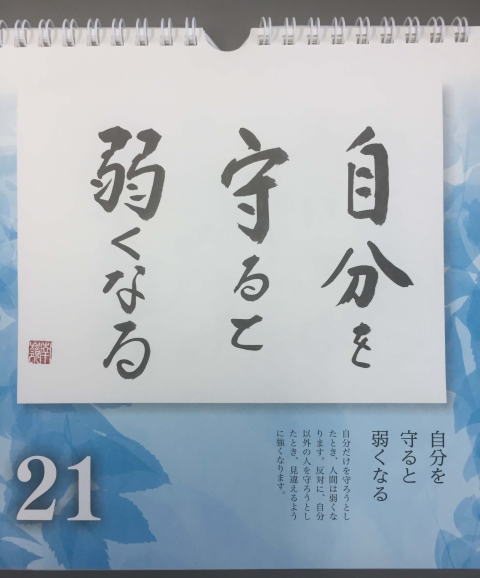 自分を
守ると
弱くなる
自分を
守ると
弱くなる
自分だけを守ろうとし
たとき、人間は弱くな
ります。反対に、自分
以外の人を守ろうとし
たとき、見違えるよう
に強くなります。
21